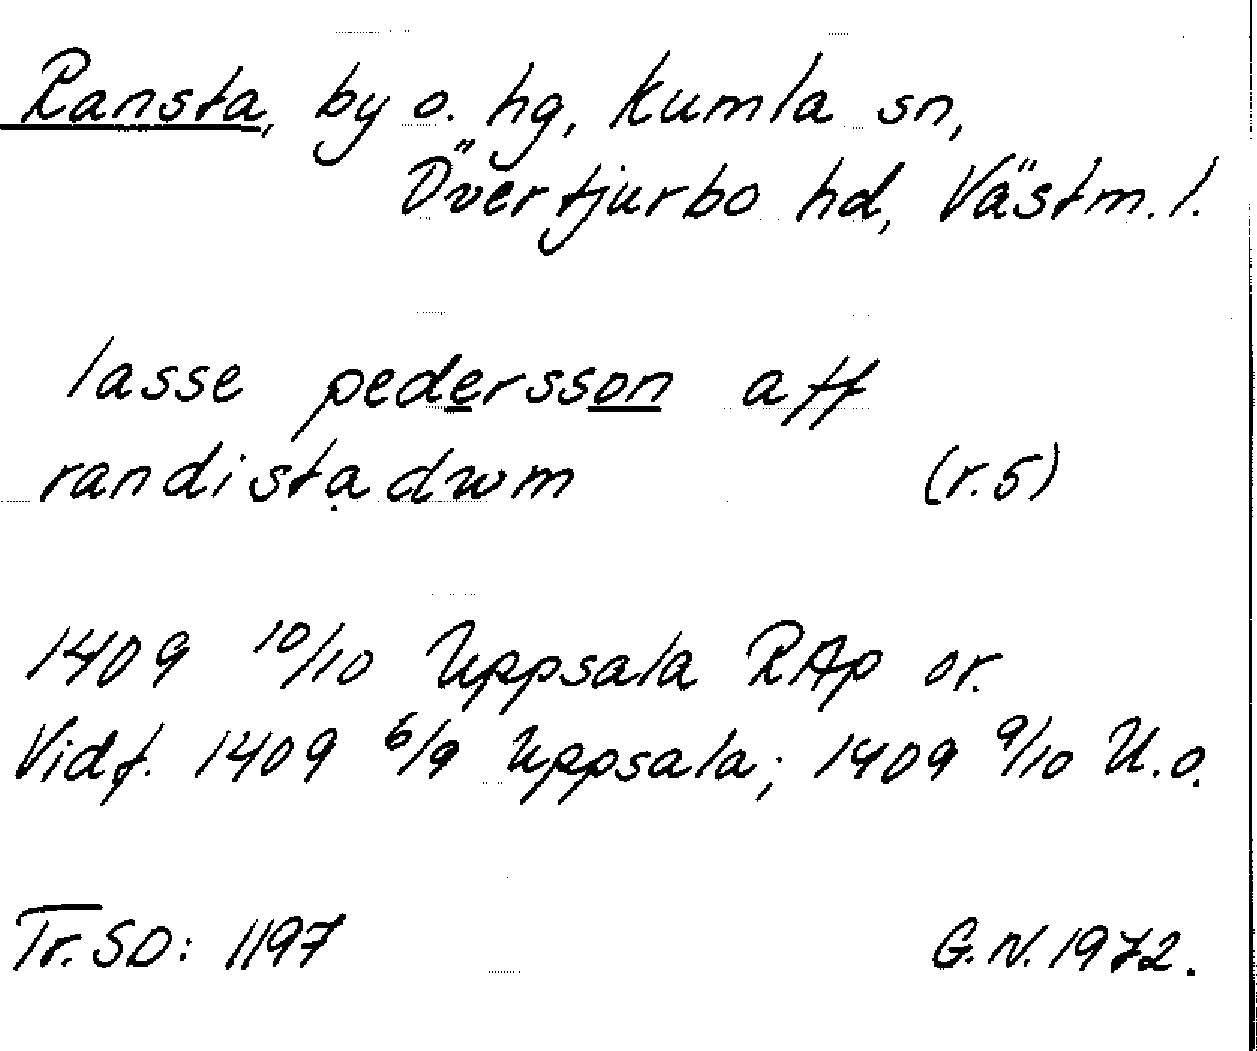 Ransta, by o. hg, Kumla sn,
Övertjurbo hd, Västm. l.
lasse pedersson aff
randistadwm (r.5)
1409 10/10 Uppsala RAp or.
Vidf. 1409 6/9 Uppsala; 1409 9/10 U.o.
Tr. SD: 1197 G.N. 1972.